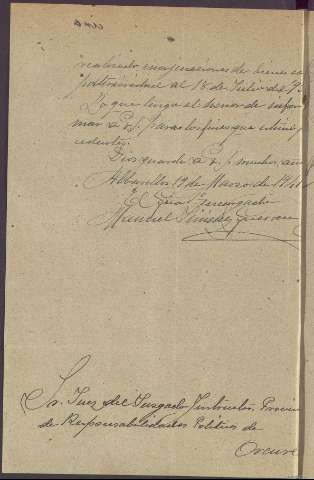 realizado enagenaciones de bienes con
posterioridad al 18 de Julio de 19
Lo que tengo el honor de infor
mar a V.S. para los fines que estime
cedentes.
Dios guarde a V.S. muchos
19 de Marzo de 1941
El Juez
Manuel
Sr. Juez del Juzgado Instructor Provin
de Responsabilidades Politicas de